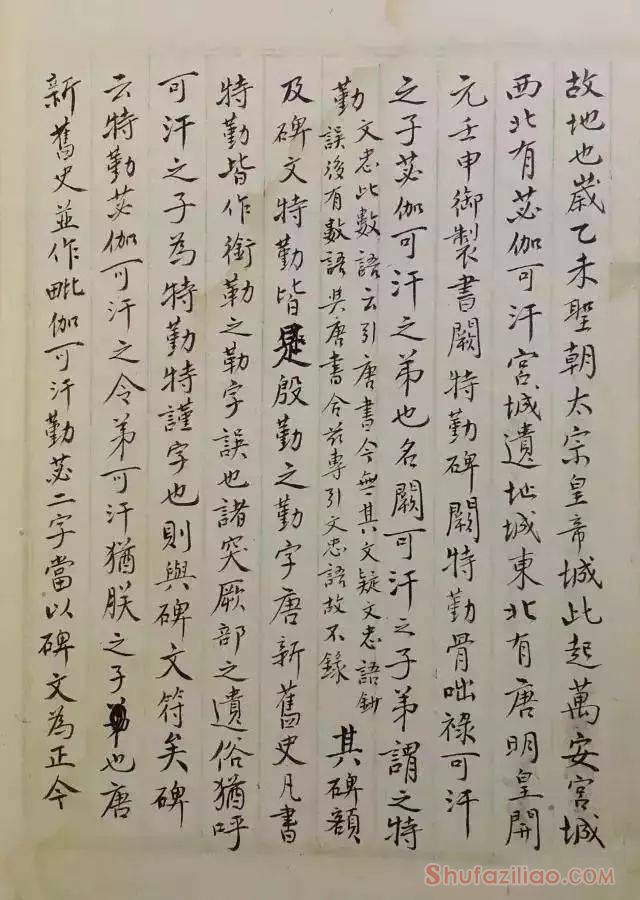 故地也歲乙未聖朝太宗皇帝城此起萬安宮城
西北有苾伽可汗宮城遺址城東北有唐明皇開
元壬申御製書闕特勤碑闕特勤骨咄祿可汗
之子苾伽可汗之弟也名闕可汗之子弟謂之特
勤文忠此數語云引唐書今無其文疑文忠語鈔
誤後有數語與唐書合茲專引文忠語故不錄其碑額
及碑文特勤皆是殷勤之勤字唐新舊史凡書
特勤皆作銜勒之勒字誤也諸突厥部之遺俗猶呼
可汗之子為特勤特謹字也則與碑文符矣碑
云特勤苾伽可汗之令弟可汗猶朕之子也唐
新舊史並作毗伽可汗勤苾二字當以碑文為正今
Shufaziliao.COM